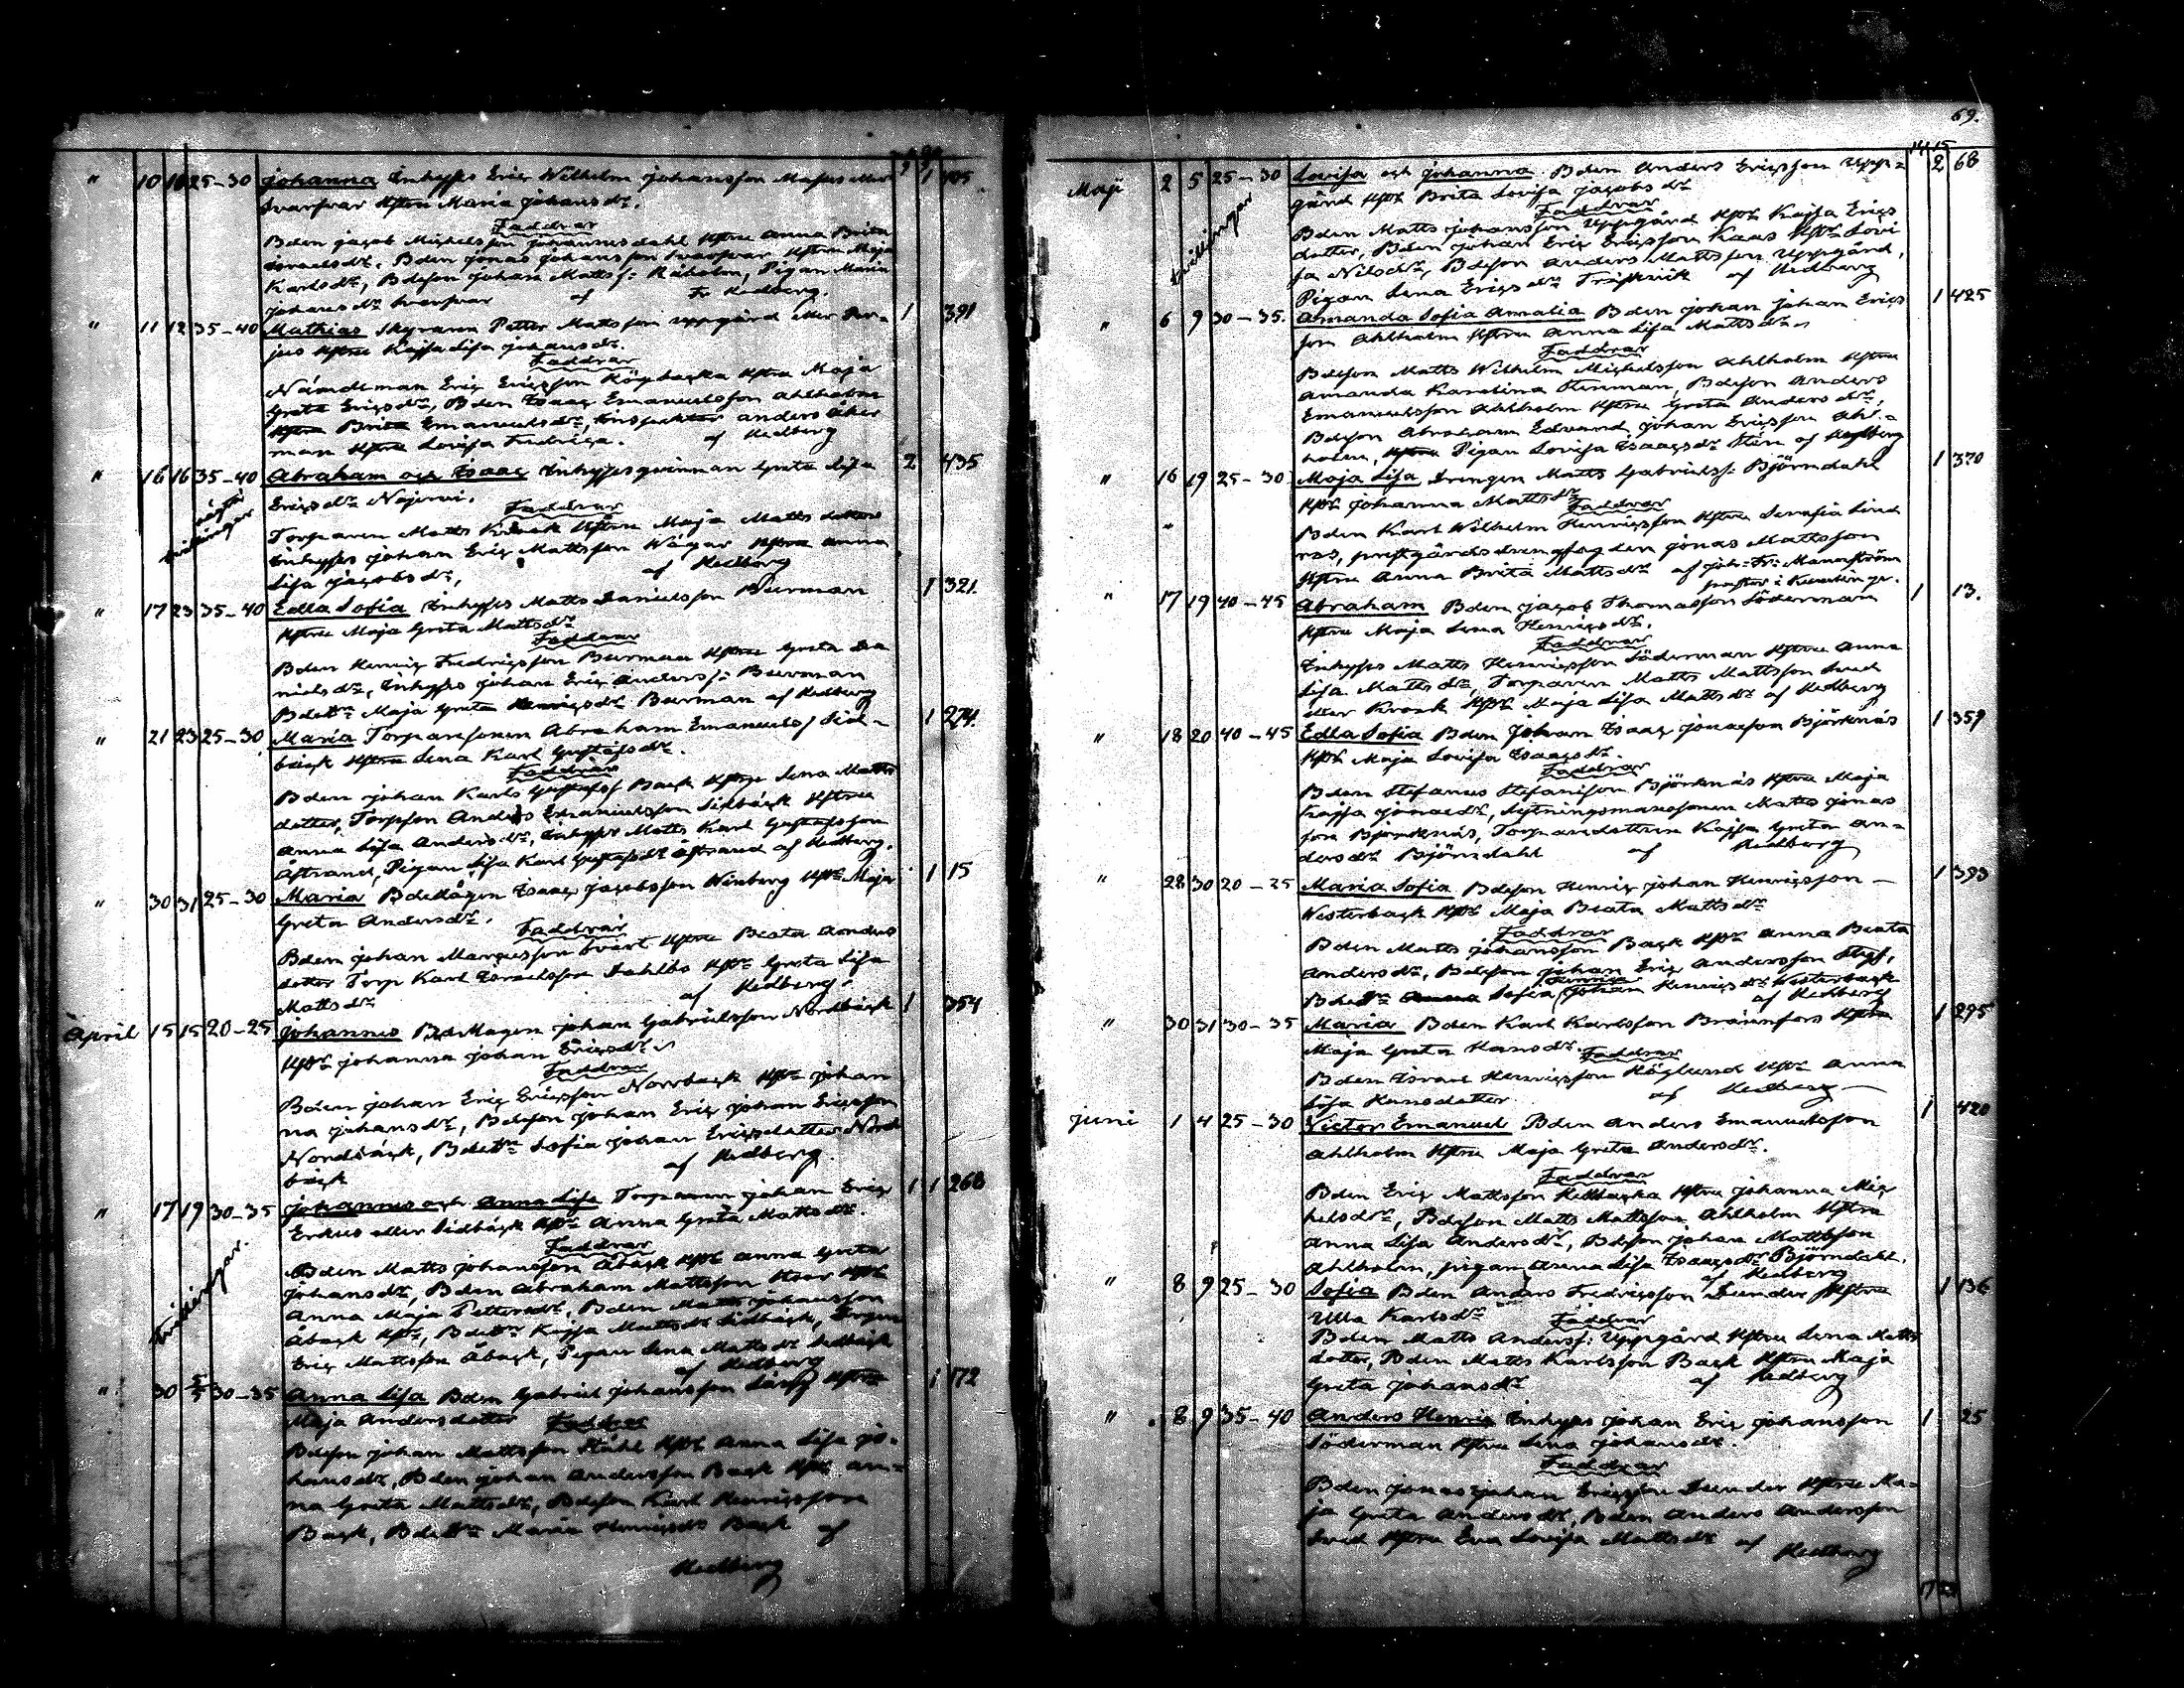 " 10 10 25-30 Johanna Inhyses Eric Wilhelm Johansson eller
Svarfvar Hstru Maria Johansdr.
Faddrar
Bden Jacob Michelsson Johannesdahl Hstru Anna Brita
Israelsdr, Bden Jonas Johansson Svarfvar, Hstru Maja
Karlsdr, Bdeson Johan Mattss: Råholm, Pigan Maria
Johansdr Svarfvar af Fr Hedberg.
" 11 12 35-40 Mathias Skytarin Petter Mattsson Uppgård eller 1 391
jus Hstru Kajsa Lisa Johansdr.
Faddrar
Nämdeman Eric Ericsson Högbacka Hstru Maja
Greta Ericsdr, Bden Isaac Emanuelsson Ahlholm
Hstru Brita Emanuelsdr, Inspektor Anders Åker
man Hstru Lovisa Fredrica. af Hedberg
" 16 16 35-40 Abraham och Isaac Inhysesqvinnan Greta Lisa 2 435
Ericsdr Nåjervi.
oägta tvillingar
Faddrar
Torparen Matts Kronk Hstru Maja Matts dotter
Inhyses Johan Eric Mattsson Wägar Hstru Anna
Lisa Jacobsdr, af Hedberg
" 17 23 35-40 Edla Sofia Inhyses Matts Danielsson Burman 1 321
Hstru Maja Greta Mattsdr
Faddrar
Bden Henric Fredricsson Burman Hstru Greta Da
nielsdr, Inhyses Johan Eric Anderss: Burman
Bdedtr Maja Greta Henricsdr Burman af Hedberg
" 21 23 25-30 Maria Torparesonen Abraham Emanuels Sid- 1 274.
bäck Hstru Lena Karl Gustafsdr.
Faddrar
Bden Johan Karls Gustafss Back Hstru Lena Matts
dotter, Torpson Anders Emanuelsson Sidbäck Hstru
Anna Lisa Andersdr, Inhyses Matts Karl Gustafsson
Åstrand, Pigan Lisa Karl Gustafsdr Åstrand af Hedberg.
" 30 31 25-30 Maria Bdemågen Isaac Jacobsson Winberg Hst Maja 1 15
Greta Andersdr.
Faddrar
Bden Johan Marcusson Svart Hstru Beata Anders
dotter Torp Karl Israelsson Dahlbo Hst Greta Lisa
Mattsdr af Hedberg.
April 15 15 20-25 Johannes BdeMagen Johan Gabrielsson Nordbäck 1 354
Hst Johanna Johan Ericsdr.
Faddrar
Bden Johan Eric Ericsson Norrback Hst Johan
na Johansdr, Bdeson Johan Eric Johan Ericsson
Nordbäck, Bdedtr Sofia Johan Ericsdotter Nord
bäck af Hedberg.
" 17 19 30-35 Johannes och Anna Lisa Torparen Johan Eric 1 1 268
Erkus eller Sidbäck Hst Anna Greta Mattsdr.
tvillingar.
Faddrar
Bden Matts Johansson Åback Hst Anna Greta
Johansdr, Bden Abraham Mattsson Hst
Anna Maja Pettersdr, Bden Matts Johansson
Åback Hst, Bdedtr Kajsa Mattsdr Sidbäck, Drgen
Eric Mattsson Åback, Pigan Lena Mattsdr Sidbäck
af Hedberg
" 30 5/5 30-35 Anna Lisa Bden Gabriel Johansson Hstru 1 172
Maja Andersdotter Faddrar
Bdeson Johan Mattsson Ståhl Hst Anna Lisa Jo-
hansdr, Bden Johan Andersson Back Hst An-
na Greta Mattsdr, Bdeson Karl Henricsson
Back, Bdedtr Maria Henricsdr Back af
Hedberg
69.
Maji 2 5 25-30 Lovisa och Johanna Bden Anders Ericsson Upp- 2 68
gård Hst Brita Lovisa Jacobsdr
tvillingar
Faddrar
Bden Matts Johansson Uppgård Hst Kajsa Erics
dotter, Bden Johan Eric Ericsson Kaas Hst Lovi
sa Nilsdr, Bdeson Anders Mattsson Uppgård,
Pigan Lena Ericsdr af Hedberg
" 6 9 30-35. Amanda Sofia Amalia Bden Johan Johan Erics 1 425
son Ahlholm Hstru Anna Lisa Mattsdr
Faddrar
Bdeson Matts Wilhelm Michelsson Ahlholm Hstru
Amanda Karolina Stenman, Bdeson Anders
Emanuelsson Ahlholm Hstru Greta Andersdr,
Bdeson Abraham Edvard Johan Ericsson Ahl-
holm, Pigan Lovisa Isaacsdr Sten af Hedberg
" 16 19 25-30 Maja Lisa Drengen Matts Gabrielss: Björndahl 1 370
Hst Johanna Mattsdr
Faddrar
Bden Karl Wilhelm Henricsson Hstru Serafia Lind
ros, prestgårdsdrengsfogden Jonas Mattsson
Hstru Anna Brita Mattsdr af Joh: Fr: Mannström
pastor i Kvevlax pr.
" 17 19 40-45 Abraham Bden Jacob Thomasson Söderman 1 13.
Hstru Maja Lena Henricsdr.
Faddrar
Inhyses Matts Henricsson Söderman Hstru Anna
Lisa Mattsdr, Torparen Matts Mattsson Sved
eller Kronk Hst Maja Lisa Mattsdr af Hedberg
" 18 20 40-45 Edla Sofia Bden Johan Isaac Jonasson Björknäs 1 359
Hst Maja Lovisa Isaacsdr.
Faddrar
Bden Stefanus Stefansson Björknäs Hstru Maja
Kajsa Jonaedr, Sytningsmansonen Matts Jonas
son Björknäs, Torparedottren Kajsa Greta An-
dersdr Björndahl af Hedberg
" 28 30 20-25 Maria Sofia Bdeson Henric Johan Henricsson - 1 393
Westerback Hst Maja Beata Mattsdr
Faddrar
Bden Matts Johansson Back Hst Anna Beata
Andersdr, Bdeson Johan Eric Andersson
Bdedtr Anna Sofia Johan Henricsdr Westerback
af Hedberg
" 30 31 30-35 Maria Bden Karl Karlsson Brännfors Hstru 1 295
Maja Greta Hansdr. Faddrar
Bden Israel Henricsson Höglund Hst Anna
Lisa Hansdotter af Hedberg
Juni 1 4 25-30 Victor Emanuel Bden Anders Emanuelsson 1 420
Ahlholm Hstru Maja Greta Andersdr.
Faddrar
Bden Eric Mattsson Hstru Johanna Mic
helsdr, Bdeson Matts Mattsson Ahlholm Hstru
Anna Lisa Andersdr, Bdeson Johan Mattsson
Ahlholm, pigan Anna Lisa Isaacsdr Björndahl.
af Hedberg
" 8 9 25-30 Sofia Bden Anders Fredricsson Sunder Hstru 1 136
Ulla Karlsdr Faddrar
Bden Matts Anderss: Uppgård Hstru Lena Matts
dotter, Bden Matts Karlsson Back Hstru Maja
Greta Johansdr af Hedberg
" 8 9 35-40 Anders Henric Inhyses Johan Eric Johansson 1 25
Söderman Hstru Lena Johansdr.
Faddrar
Bden Jonas Johan Ericsson Sunder Hstru Ma-
ja Greta Andersdr, Bden Anders Andersson
Sved Hstru Eva Lovisa Mattsdr af Hedberg